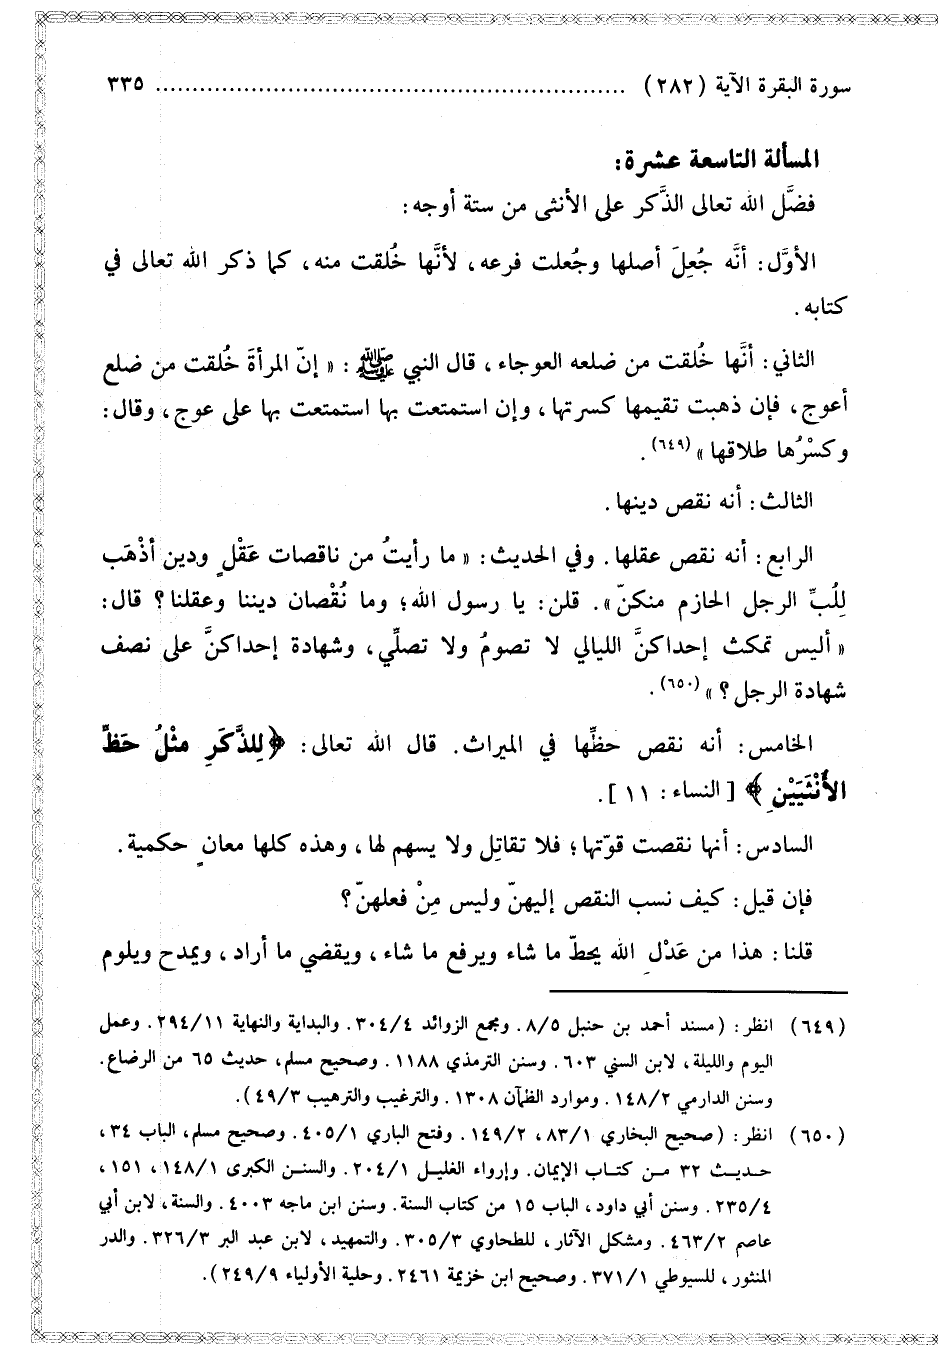 سورة البقرة الآية (٢٨٢) ................................................................ ٣٣٥
المسألة التاسعة عشرة:
فضَّل الله تعالى الذَّكر على الأنثى من ستة أوجه:
الأوَّل: أنَّه جُعِلَ أصلها وجُعلت فرعه، لأنَّها خُلقت منه، كما ذكر الله تعالى في
كتابه.
الثاني: أنَّها خُلقت من ضلعه العوجاء، قال النبي ﷺ: «إنّ المرأةَ خُلقت من ضلع
أعوج، فإن ذهبت تقيمها كسرتها، وإن استمتعت بها استمتعت بها على عوج، وقال:
وكسْرُها طلاقها»(٦٤٩).
الثالث: أنه نقص دينها.
الرابع: أنه نقص عقلها. وفي الحديث: «ما رأيتُ من ناقصات عَقْلٍ ودين أذْهَب
لِلُبِّ الرجل الحازم منكنّ». قلن: يا رسول الله؛ وما نُقْصان ديننا وعقلنا؟ قال:
«أليس تمكث إحداكنَّ الليالي لا تصومُ ولا تصلِّي، وشهادة إحداكنَّ على نصف
شهادة الرجل؟»(٦٥٠).
الخامس: أنه نقص حظِّها في الميراث. قال الله تعالى: ﴿لِلذَّكَرِ مثْلُ حَظِّ
الأُنْثَيَيْنِ﴾ [النساء: ١١].
السادس: أنها نقصت قوّتها؛ فلا تقاتِل ولا يسهم لها، وهذه كلها معانٍ حكمية.
فإن قيل: كيف نسب النقص إليهنّ وليس مِنْ فعلهنّ؟
قلنا: هذا من عَدْلِ الله يحطّ ما شاء ويرفع ما شاء، ويقضي ما أراد، ويمدح ويلوم
(٦٤٩) انظر: (مسند أحمد بن حنبل ٨/٥. ومجمع الزوائد ٣٠٤/٤. والبداية والنهاية ٢٩٤/١١. وعمل
اليوم والليلة، لابن السني ٦٠٣. وسنن الترمذي ١١٨٨. وصحيح مسلم، حديث ٦٥ من الرضاع.
وسنن الدارمي ١٤٨/٢. وموارد الظمآن ١٣٠٨. والترغيب والترهيب ٤٩/٣).
(٦٥٠) انظر: (صحيح البخاري ٨٣/١، ١٤٩/٢. وفتح الباري ٤٠٥/١. وصحيح مسلم، الباب ٣٤،
حديث ٣٢ من كتاب الإيمان. وإرواء الغليل ٢٠٤/١. والسنن الكبرى ١٤٨/١، ١٥١،
٢٣٥/٤. وسنن أبي داود، الباب ١٥ من كتاب السنة. وسنن ابن ماجه ٤٠٠٣. والسنة، لابن أبي
عاصم ٤٦٣/٢. ومشكل الآثار، للطحاوي ٣٠٥/٣. والتمهيد، لابن عبد البر ٣٢٦/٣. والدر
المنثور، للسيوطي ٣٧١/١. وصحيح ابن خزيمة ٢٤٦١. وحلية الأولياء ٢٤٩/٩).